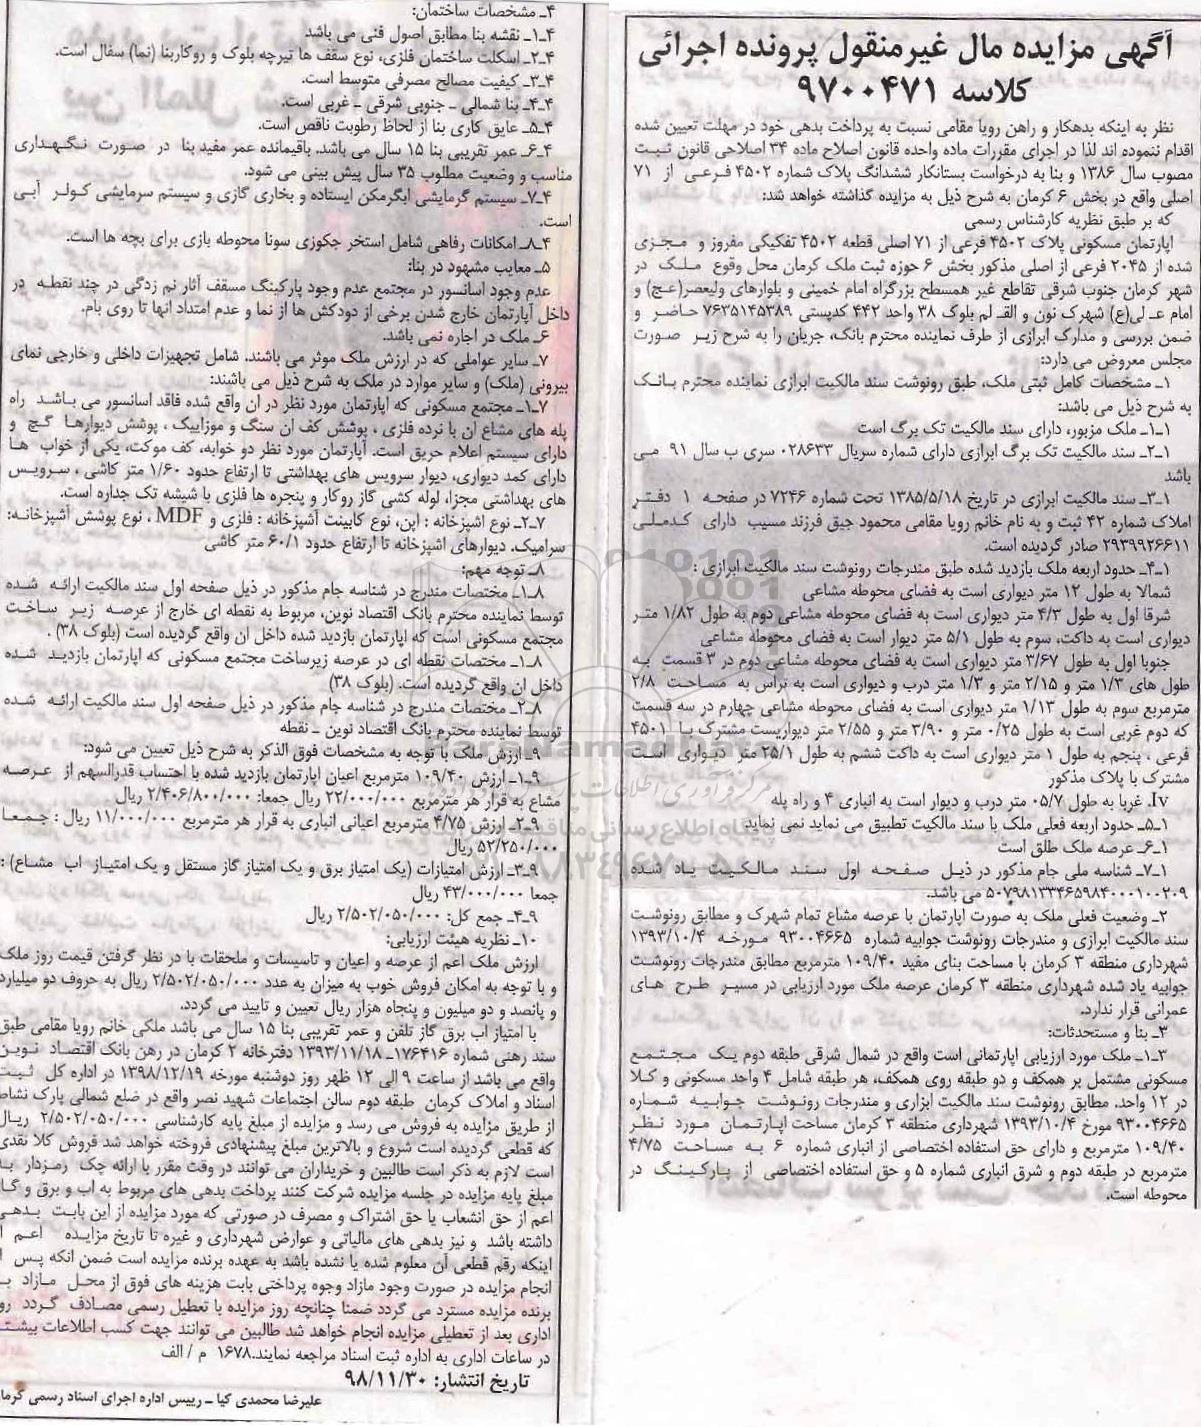 آگهی مزایده مال غیرمنقول پرونده اجرائی
کلاسه ۹۷۰۰۴۷۱
نظر به اینکه بدهکار و راهن رویا مقامی نسبت به پرداخت بدهی خود در مهلت تعیین شده
اقدام ننموده اند لذا در اجرای مقررات ماده واحده قانون اصلاح ماده ۳۴ اصلاحی قانون ثبت
مصوب سال ۱۳۸۶ و بنا به درخواست بستانکار ششدانگ پلاک شماره ۴۵۰۲ فرعی از ۷۱
اصلی واقع در بخش ۶ کرمان به شرح ذیل به مزایده گذاشته خواهد شد:
که بر طبق نظریه کارشناس رسمی
اپارتمان مسکونی پلاک ۴۵۰۲ فرعی از ۷۱ اصلی قطعه ۴۵۰۲ تفکیکی مفروز و مجزی
شده از ۲۰۴۵ فرعی از اصلی مذکور بخش ۶ حوزه ثبت ملک کرمان محل وقوع ملک در
شهر کرمان جنوب شرقی تقاطع غیر همسطح بزرگراه امام خمینی و بلوارهای ولیعصر(عج) و
امام علی(ع) شهرک نون و القلم بلوک ۳۸ واحد ۴۴۲ کدپستی ۷۶۳۵۱۴۵۳۸۹ حاضر و
ضمن بررسی و مدارک ابرازی از طرف نماینده محترم بانک، جریان را به شرح زیر صورت
مجلس معروض می دارد:
۱ـ مشخصات کامل ثبتی ملک، طبق رونوشت سند مالکیت ابرازی نماینده محترم بانک
به شرح ذیل می باشد:
۱ـ۱ـ ملک مزبور، دارای سند مالکیت تک برگ است
۱ـ۲ـ سند مالکیت تک برگ ابرازی دارای شماره سریال ۰۲۸۶۳۳ سری ب سال ۹۱ می
باشد
۱ـ۳ـ سند مالکیت ابرازی در تاریخ ۱۳۸۵/۵/۱۸ تحت شماره ۷۲۴۶ در صفحه ۱ دفتر
املاک شماره ۴۲ ثبت و به نام خانم رویا مقامی محمود جیق فرزند مسیب دارای کدملی
۲۹۳۹۹۲۶۶۱۱ صادر گردیده است.
۱ـ۴ـ حدود اربعه ملک بازدید شده طبق مندرجات رونوشت سند مالکیت ابرازی :
شمالا به طول ۱۲ متر دیواری است به فضای محوطه مشاعی
شرقا اول به طول ۴/۳ متر دیواری است به فضای محوطه مشاعی دوم به طول ۱/۸۲ متر
دیواری است به داکت، سوم به طول ۵/۱ متر دیوار است به فضای محوطه مشاعی
جنوبا اول به طول ۳/۶۷ متر دیواری است به فضای محوطه مشاعی دوم در ۳ قسمت به
طول های ۱/۳ متر و ۲/۱۵ متر و ۱/۳ متر درب و دیواری است به تراس به مساحت ۲/۸
مترمربع سوم به طول ۱/۱۳ متر دیواری است به فضای محوطه مشاعی چهارم در سه قسمت
که دوم غربی است به طول ۰/۲۵ متر و ۳/۹۰ متر و ۲/۵۵ متر دیواریست مشترک با ۴۵۰۱
فرعی ، پنجم به طول ۱ متر دیواری است به داکت ششم به طول ۲۵/۱ متر دیواری است
مشترک با پلاک مذکور
Iv. غربا به طول ۰۵/۷ متر درب و دیوار است به انباری ۴ و راه پله
۱ـ۵ـ حدود اربعه فعلی ملک با سند مالکیت تطبیق می نماید نمی نماید
۱ـ۶ـ عرصه ملک طلق است
۱ـ۷ـ شناسه ملی جام مذکور در ذیل صفحه اول سند مالکیت یاد شده
۵۰۷۹۸۱۳۳۴۶۵۹۸۴۰۰۰۱۰۰۲۰۹ می باشد.
۲ـ وضعیت فعلی ملک به صورت اپارتمان با عرصه مشاع تمام شهرک و مطابق رونوشت
سند مالکیت ابرازی و مندرجات رونوشت جوابیه شماره ۹۳۰۰۴۶۶۵ مورخه ۱۳۹۳/۱۰/۴
شهرداری منطقه ۳ کرمان با مساحت بنای مفید ۱۰۹/۴۰ مترمربع مطابق مندرجات رونوشت
جوابیه یاد شده شهرداری منطقه ۳ کرمان عرصه ملک مورد ارزیابی در مسیر طرح های
عمرانی قرار ندارد.
۳ـ بنا و مستحدثات:
۳ـ۱ـ ملک مورد ارزیابی اپارتمانی است واقع در شمال شرقی طبقه دوم یک مجتمع
مسکونی مشتمل بر همکف و دو طبقه روی همکف، هر طبقه شامل ۴ واحد مسکونی و کلا
در ۱۲ واحد. مطابق رونوشت سند مالکیت ابرازی و مندرجات رونوشت جوابیه شماره
۹۳۰۰۴۶۶۵ مورخ ۱۳۹۳/۱۰/۴ شهرداری منطقه ۳ کرمان مساحت اپارتمان مورد نظر
۱۰۹/۴۰ مترمربع و دارای حق استفاده اختصاصی از انباری شماره ۶ به مساحت ۴/۷۵
مترمربع در طبقه دوم و شرق انباری شماره ۵ و حق استفاده اختصاصی از پارکینگ در
محوطه است.
۴ـ مشخصات ساختمان:
۴ـ۱ـ نقشه بنا مطابق اصول فنی می باشد
۴ـ۲ـ اسکلت ساختمان فلزی، نوع سقف ها تیرچه بلوک و روکاربنا (نما) سفال است.
۴ـ۳ـ کیفیت مصالح مصرفی متوسط است.
۴ـ۴ـ بنا شمالی ـ جنوبی شرقی ـ غربی است.
۴ـ۵ـ عایق کاری بنا از لحاظ رطوبت ناقص است.
۴ـ۶ـ عمر تقریبی بنا ۱۵ سال می باشد. باقیمانده عمر مفید بنا در صورت نگهداری
مناسب و وضعیت مطلوب ۳۵ سال پیش بینی می شود.
۴ـ۷ـ سیستم گرمایشی ابگرمکن ایستاده و بخاری گازی و سیستم سرمایشی کولر آبی
است.
۴ـ۸ـ امکانات رفاهی شامل استخر جکوزی سونا محوطه بازی برای بچه ها است.
۵ـ معایب مشهود در بنا:
عدم وجود اسانسور در مجتمع عدم وجود پارکینگ مسقف آثار نم زدگی در چند نقطه در
داخل آپارتمان خارج شدن برخی از دودکش ها از نما و عدم امتداد انها تا روی بام.
۶ـ ملک در اجاره نمی باشد.
۷ـ سایر عواملی که در ارزش ملک موثر می باشند. شامل تجهیزات داخلی و خارجی نمای
بیرونی (ملک) و سایر موارد در ملک به شرح ذیل می باشند:
۷ـ۱ـ مجتمع مسکونی که اپارتمان مورد نظر در ان واقع شده فاقد اسانسور می باشد راه
پله های مشاع ان با نرده فلزی ، پوشش کف ان سنگ و موزاییک ، پوشش دیوارها گچ و
دارای سیستم اعلام حریق است. آپارتمان مورد نظر دو خوابه، کف موکت، یکی از خواب ها
دارای کمد دیواری، دیوار سرویس های بهداشتی تا ارتفاع حدود ۱/۶۰ متر کاشی ، سرویس
های بهداشتی مجزا، لوله کشی گاز روکار و پنجره ها فلزی با شیشه تک جداره است.
۷ـ۲ـ نوع اشپزخانه : اپن، نوع کابینت آشپزخانه : فلزی و MDF ، نوع پوشش آشپزخانه:
سرامیک. دیوارهای اشپزخانه تا ارتفاع حدود ۶۰/۱ متر کاشی
۸ـ توجه مهم:
۸ـ۱ـ مختصات مندرج در شناسه جام مذکور در ذیل صفحه اول سند مالکیت ارائه شده
توسط نماینده محترم بانک اقتصاد نوین، مربوط به نقطه ای خارج از عرصه زیر ساخت
مجتمع مسکونی است که اپارتمان بازدید شده داخل ان واقع گردیده است (بلوک ۳۸) .
۸ـ۱ـ مختصات نقطه ای در عرصه زیرساخت مجتمع مسکونی که اپارتمان بازدید شده
داخل ان واقع گردیده است. (بلوک ۳۸)
۸ـ۲ـ مختصات مندرج در شناسه جام مذکور در ذیل صفحه اول سند مالکیت ارائه شده
توسط نماینده محترم بانک اقتصاد نوین ـ نقطه
۹ـ ارزش ملک با توجه به مشخصات فوق الذکر به شرح ذیل تعیین می شود:
۹ـ۱ـ ارزش ۱۰۹/۴۰ مترمربع اعیان اپارتمان بازدید شده با احتساب قدرالسهم از عرصه
مشاع به قرار هر مترمربع ۲۲/۰۰۰/۰۰۰ ریال جمعا: ۲/۴۰۶/۸۰۰/۰۰۰ ریال
۹ـ۲ـ ارزش ۴/۷۵ مترمربع اعیانی انباری به قرار هر مترمربع ۱۱/۰۰۰/۰۰۰ ریال : جمعا
۵۲/۲۵۰/۰۰۰ ریال
۹ـ۳ـ ارزش امتیازات (یک امتیاز برق و یک امتیاز گاز مستقل و یک امتیاز اب مشاع) :
جمعا ۴۳/۰۰۰/۰۰۰ ریال
۹ـ۴ـ جمع کل: ۲/۵۰۲/۰۵۰/۰۰۰ ریال
۱۰ـ نظریه هیئت ارزیابی:
ارزش ملک اعم از عرصه و اعیان و تاسیسات و ملحقات با در نظر گرفتن قیمت روز ملک
و با توجه به امکان فروش خوب به میزان به عدد ۲/۵۰۲/۰۵۰/۰۰۰ ریال به حروف دو میلیارد
و پانصد و دو میلیون و پنجاه هزار ریال تعیین و تایید می گردد.
با امتیاز اب برق گاز تلفن و عمر تقریبی بنا ۱۵ سال می باشد ملکی خانم رویا مقامی طبق
سند رهنی شماره ۱۷۶۴۱۶ـ ۱۳۹۳/۱۱/۱۸ دفترخانه ۲ کرمان در رهن بانک اقتصاد نوین
واقع می باشد از ساعت ۹ الی ۱۲ ظهر روز دوشنبه مورخه ۱۳۹۸/۱۲/۱۹ در اداره کل ثبت
اسناد و املاک کرمان طبقه دوم سالن اجتماعات شهید نصر واقع در ضلع شمالی پارک نشاط
از طریق مزایده به فروش می رسد و مزایده از مبلغ پایه کارشناسی ۲/۵۰۲/۰۵۰/۰۰۰ ریال
که قطعی گردیده است شروع و بالاترین مبلغ پیشنهادی فروخته خواهد شد فروش کلا نقدی
است لازم به ذکر است طالبین و خریداران می توانند در وقت مقرر با ارائه چک رمزدار به
مبلغ پایه مزایده در جلسه مزایده شرکت کنند پرداخت بدهی های مربوط به اب و برق و گاز
اعم از حق انشعاب یا حق اشتراک و مصرف در صورتی که مورد مزایده از این بابت بدهی
داشته باشد و نیز بدهی های مالیاتی و عوارض شهرداری و غیره تا تاریخ مزایده اعم از
اینکه رقم قطعی آن معلوم شده یا نشده باشد به عهده برنده مزایده است ضمن انکه پس از
انجام مزایده در صورت وجود مازاد وجوه پرداختی بابت هزینه های فوق از محل مازاد به
برنده مزایده مسترد می گردد ضمنا چنانچه روز مزایده با تعطیل رسمی مصادف گردد روز
اداری بعد از تعطیلی مزایده انجام خواهد شد طالبین می توانند جهت کسب اطلاعات بیشتر
در ساعات اداری به اداره ثبت اسناد مراجعه نمایند.۱۶۷۸ م / الف
تاریخ انتشار: ۹۸/۱۱/۳۰
علیرضا محمدی کیا ـ رییس اداره اجرای اسناد رسمی کرمان